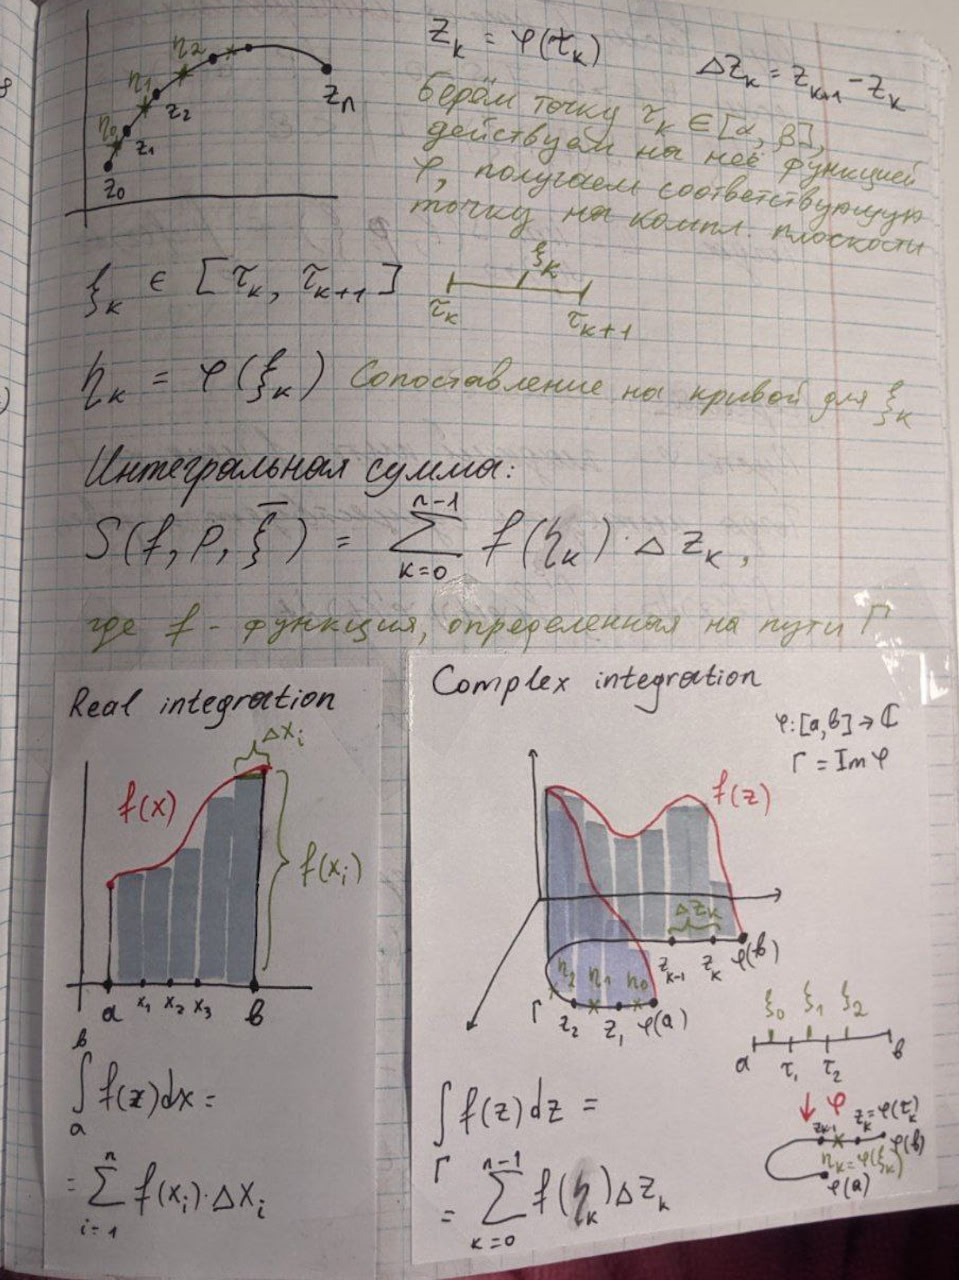 η₀ η₁ η₂
z₀ z₁ z₂ zₙ
z_k = φ(τ_k) Δz_k = z_{k+1} - z_k
Берём точку τ_k ∈ [α, β],
действуем на неё функцией
φ, получаем соответствующую
точку на компл. плоскости
ξ_k ∈ [τ_k, τ_{k+1}]
τ_k ξ_k τ_{k+1}
η_k = φ(ξ_k) Сопоставление на кривой для ξ_k
Интегральная сумма:
S(f, P, ξ̅) = ∑_{k=0}^{n-1} f(η_k) · Δz_k,
где f - функция, определенная на пути Γ
Real integration
Δx_i
f(x)
f(x_i)
a x₁ x₂ x₃ b
∫_a^b f(x)dx =
= ∑_{i=1}^n f(x_i)·Δx_i
Complex integration
φ: [a, b] → ℂ
Γ = Im φ
f(z)
Δz_k
z_{k-1} z_k φ(b)
η₂ η₁ η₀
Γ z₂ z₁ φ(a)
ξ₀ ξ₁ ξ₂
a τ₁ τ₂ b
↓ φ
z_{k-1} z_k = φ(τ_k)
φ(b)
η_k = φ(ξ_k)
φ(a)
∫_Γ f(z) dz =
= ∑_{k=0}^{n-1} f(η_k) Δz_k